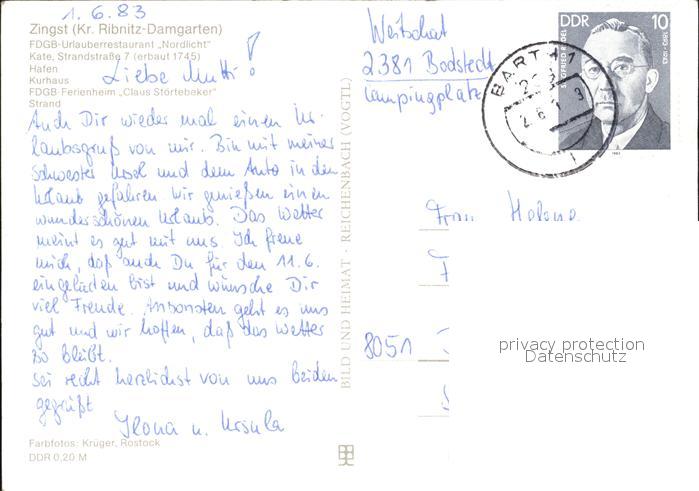 1.6.83
Zingst (Kr. Ribnitz-Damgarten)
FDGB-Urlauberrestaurant „Nordlicht"
Kate, Strandstraße 7 (erbaut 1745)
Hafen
Kurhaus
FDGB-Ferienheim „Claus Störtebeker"
Strand
Liebe Mutti!
Auch Dir wieder mal einen Ur-
laubsgruß von mir. Bin mit meiner
Schwester Rosel und dem Auto in den
Urlaub gefahren. Wir genießen einen
wunderschönen Urlaub. Das Wetter
meint es gut mit uns. Ich freue
mich, daß auch Du für den 11.6.
eingeladen bist und wünsche Dir
viel Freude. Ansonsten geht es uns
gut und wir hoffen, daß das Wetter
so bleibt.
Sei recht herzlichst von uns beiden
gegrüßt
Ilona u. Ursula
Farbfotos: Krüger, Rostock
DDR 0,20 M
BILD UND HEIMAT · REICHENBACH (VOGTL)
2381 Bodstedt
Campingplatz
DDR 10
1893-1943
BARTH
Frau
8051
privacy protection
Datenschutz